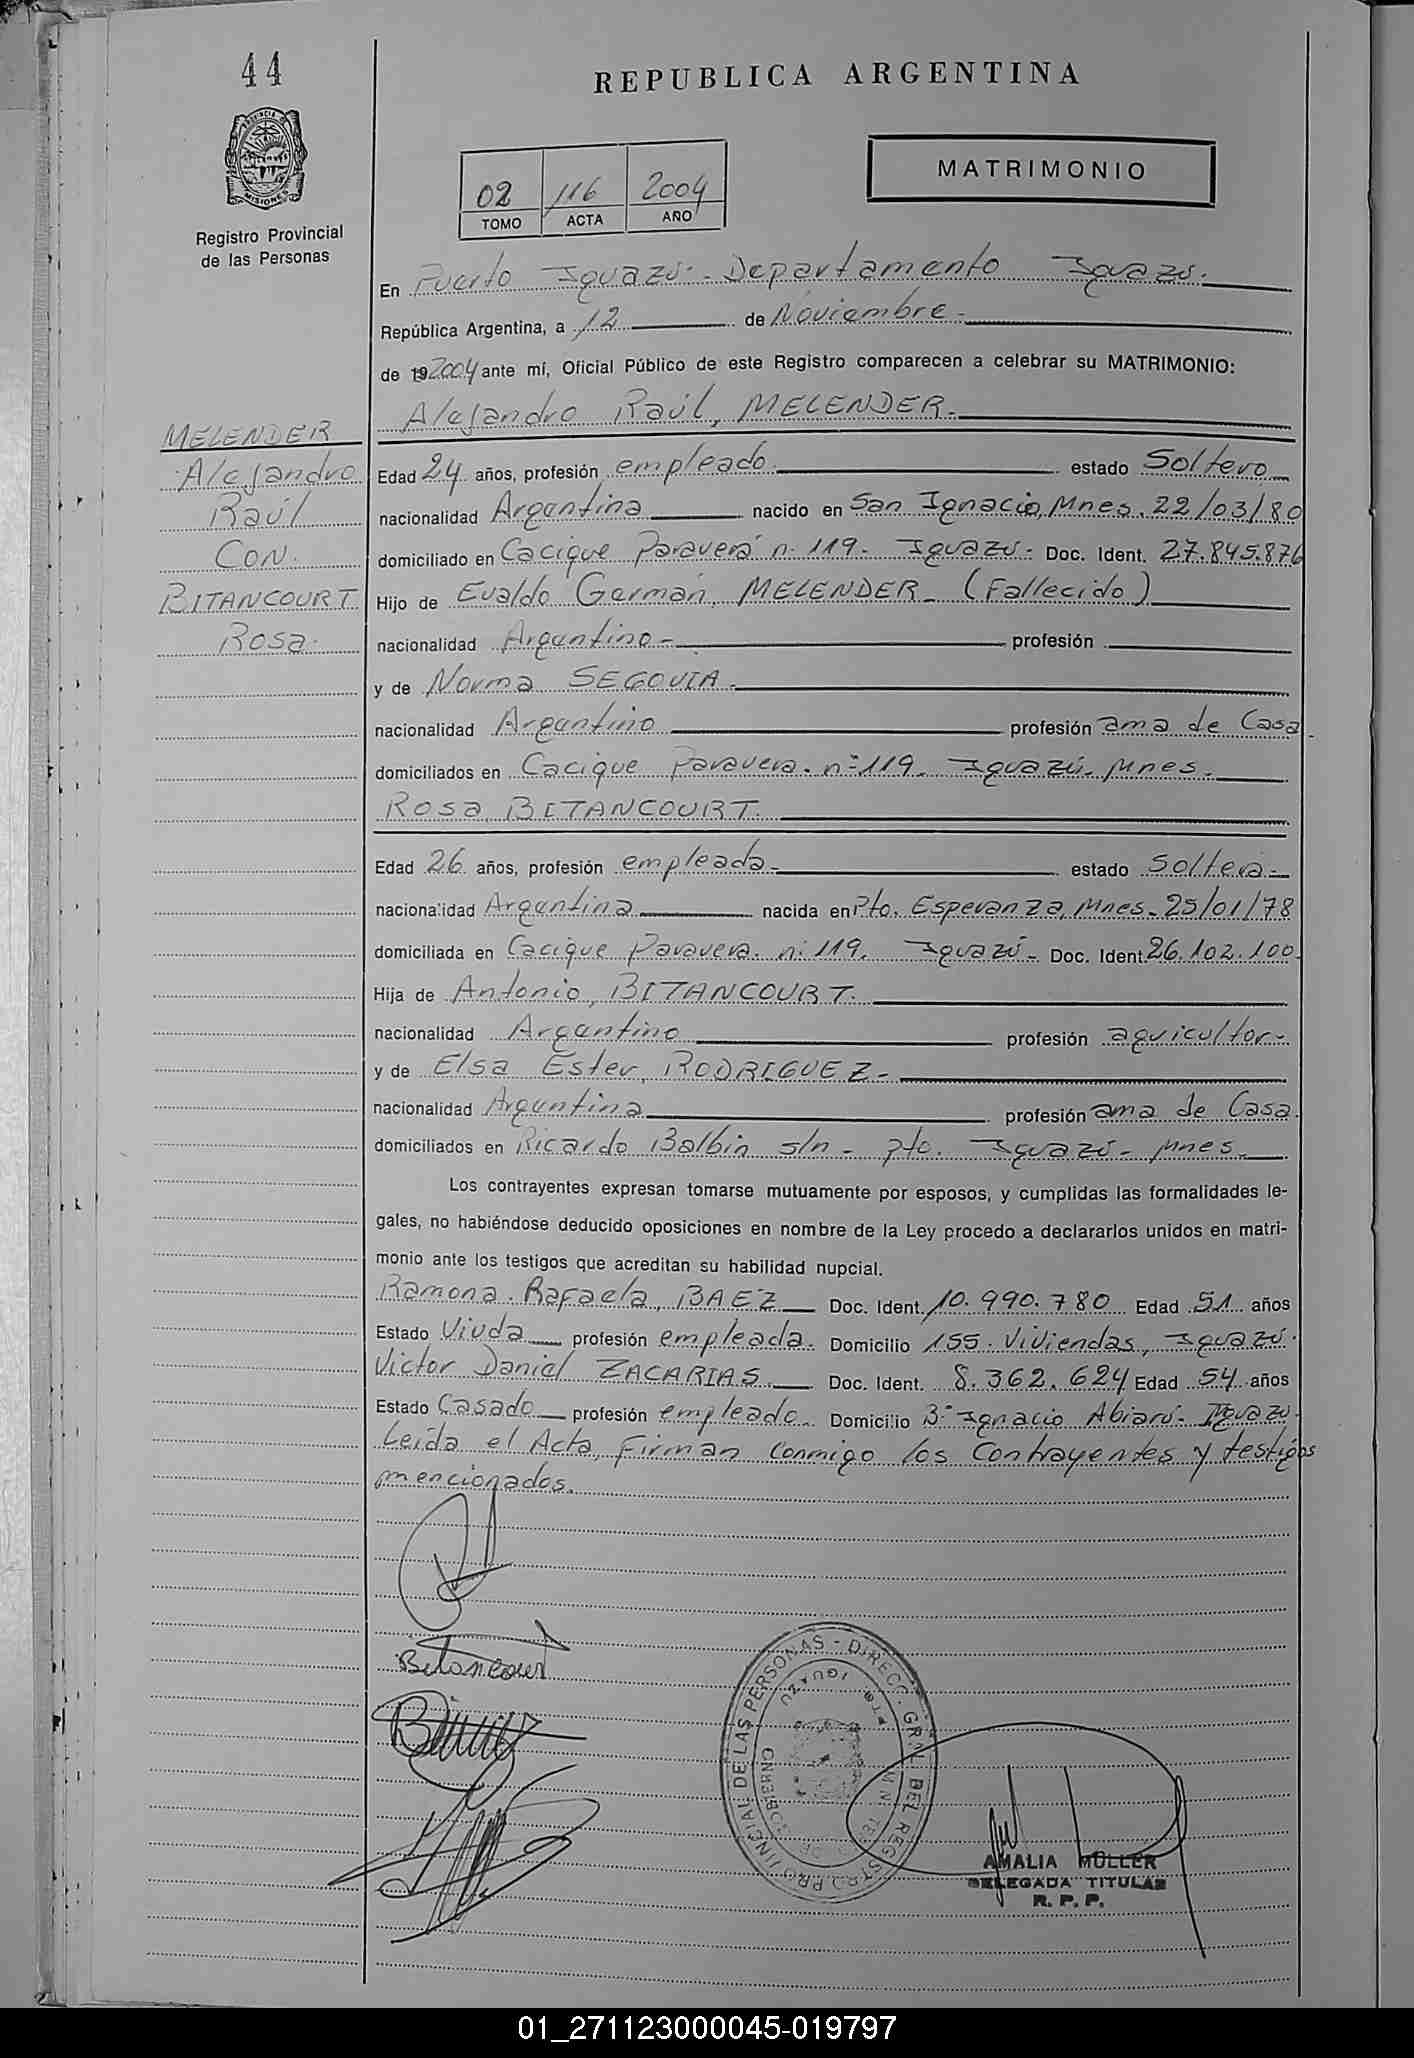 44
REPUBLICA ARGENTINA
PROVINCIA DE
MISIONES
Registro Provincial
de las Personas
02 116 2004
TOMO ACTA AÑO
MATRIMONIO
En Puerto Iguazú - Departamento Iguazú.
República Argentina, a 12 de Noviembre -
de 19 2004 ante mí, Oficial Público de este Registro comparecen a celebrar su MATRIMONIO:
Alejandro Raúl, MELENDER.
MELENDER
Alejandro
Raúl
Con.
BITANCOURT
Rosa.
Edad 24 años, profesión empleado estado Soltero
nacionalidad Argentina nacido en San Ignacio, Mnes. 22/03/80
domiciliado en Cacique Paraverá n. 119. Iguazú - Doc. Ident. 27.845.876
Hijo de Evaldo Germán, MELENDER - (Fallecido)
nacionalidad Argentino - profesión
y de Norma SEGOVIA.
nacionalidad Argentino profesión ama de Casa
domiciliados en Cacique Paravera. nº 119. Iguazú. Mnes.
Rosa, BITANCOURT.
Edad 26 años, profesión empleada estado Soltera -
nacionalidad Argentina nacida en Pto. Esperanza, Mnes - 25/01/78
domiciliada en Cacique Paravera. n: 119. Iguazú - Doc. Ident. 26.102.100
Hija de Antonio, BITANCOURT.
nacionalidad Argentino profesión agricultor -
y de Elsa Ester, RODRIGUEZ -
nacionalidad Argentina profesión ama de Casa.
domiciliados en Ricardo Balbin s/n - pto. Iguazú - Mnes.
Los contrayentes expresan tomarse mutuamente por esposos, y cumplidas las formalidades le-
gales, no habiéndose deducido oposiciones en nombre de la Ley procedo a declararlos unidos en matri-
monio ante los testigos que acreditan su habilidad nupcial.
Ramona Rafaela, BAEZ Doc. Ident. 10.990.780 Edad 51 años
Estado Viuda profesión empleada. Domicilio 155. Viviendas, Iguazú.
Victor Daniel ZACARIAS. Doc. Ident. 8.362.624 Edad 54 años
Estado Casado profesión empleado. Domicilio Bº Ignacio Abiarú - Iguazú.
Leída el Acta, Firman Conmigo los Contrayentes y testigos
mencionados.
Bitancourt
REGISTRO PROVINCIAL DE LAS PERSONAS - DIRECC. GRAL. DEL
PTO. IGUAZU
AMALIA MÜLLER
DELEGADA TITULAR
R. P. P.
01_271123000045-019797